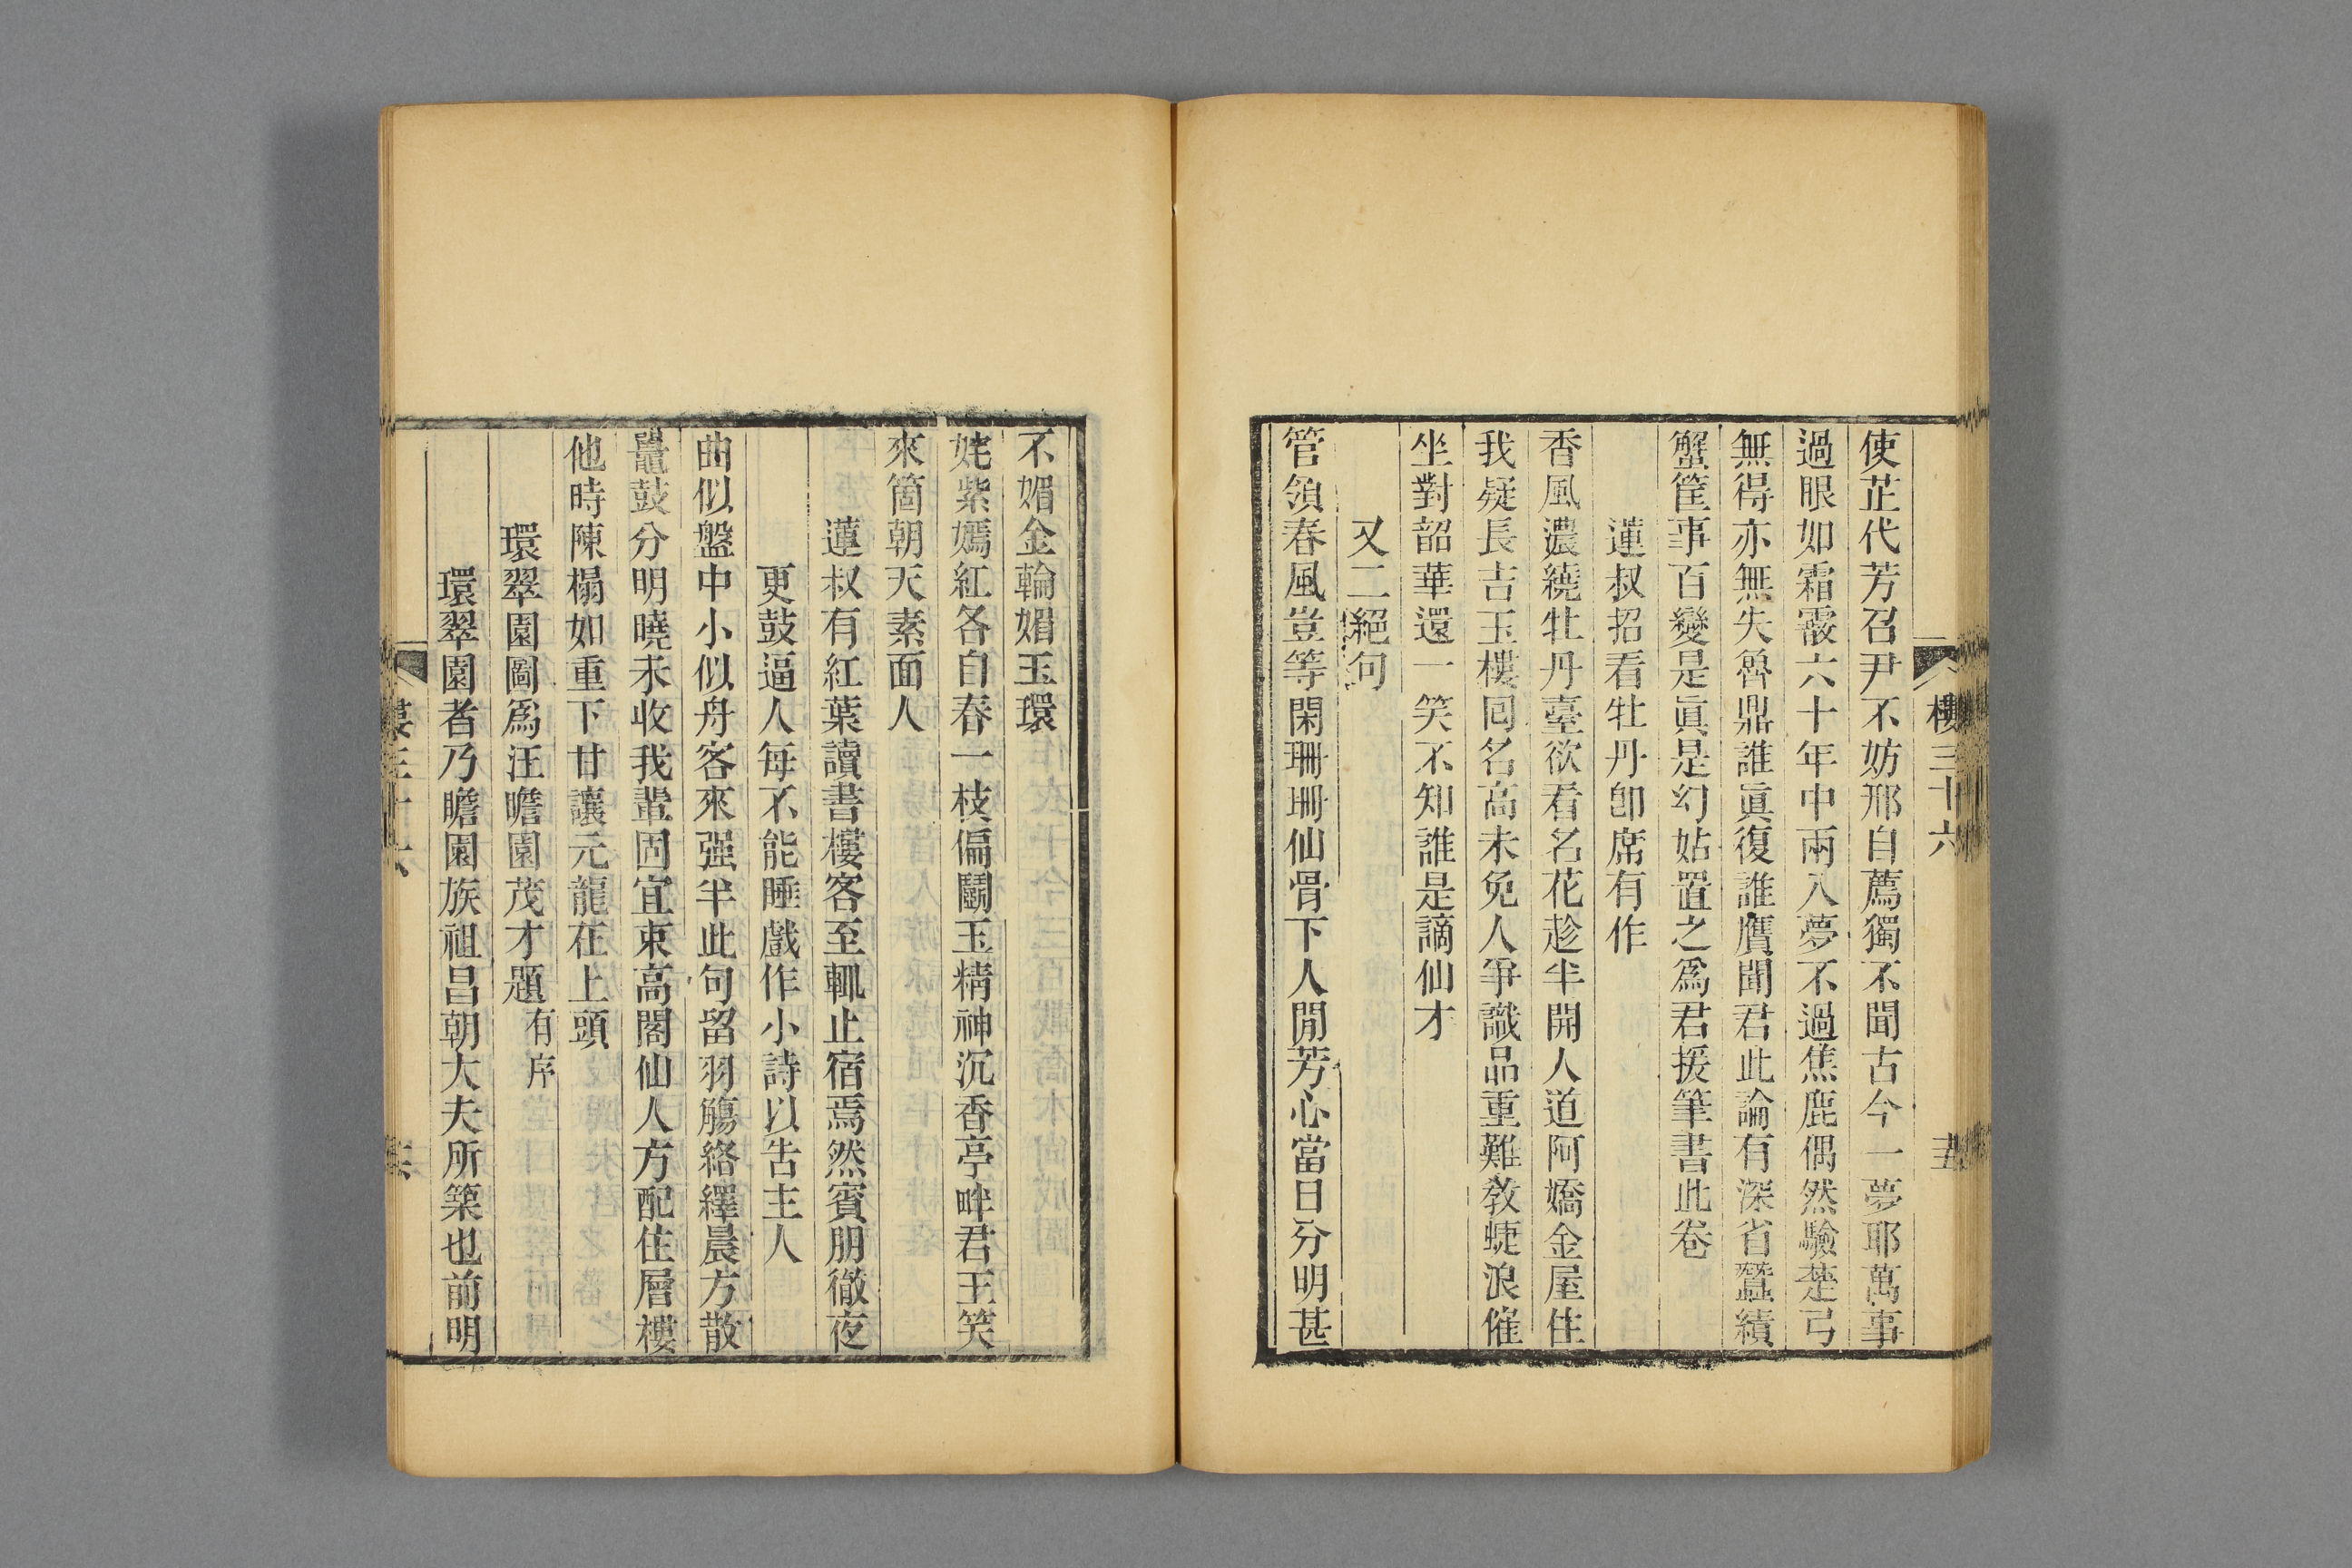 樓三十六
使芷代芳召尹不妨邢自薦獨不聞古今一夢耶萬事
過眼如霜霰六十年中兩入夢不過焦鹿偶然驗楚弓
無得亦無失魯鼎誰眞復誰贋聞君此論有深省蠶績
蟹筐事百變是眞是幻姑置之爲君援筆書此卷
蓮叔招看牡丹卽席有作
香風濃繞牡丹臺欲看名花趁半開人道阿嬌金屋住
我疑長吉玉樓回名高未免人爭識品重難敎蜨浪催
坐對韶華還一笑不知誰是謫仙才
又二絕句
管領春風豈等閑珊珊仙骨下人閒芳心當日分明甚
不媚金輪媚玉環
姹紫嫣紅各自春一枝偏鬭玉精神沉香亭畔君王笑
來箇朝天素面人
蓮叔有紅葉讀書樓客至輒止宿焉然賓朋徹夜
更鼓逼人每不能睡戲作小詩以吿主人
曲似盤中小似舟客來强半此句留羽觴絡繹晨方散
鼉鼓分明曉未收我輩固宜束高閣仙人方配住層樓
他時陳榻如重下甘讓元龍在上頭
環翠園圖爲汪瞻園茂才題有序
環翠園者乃瞻園族祖昌朝大夫所築也前明